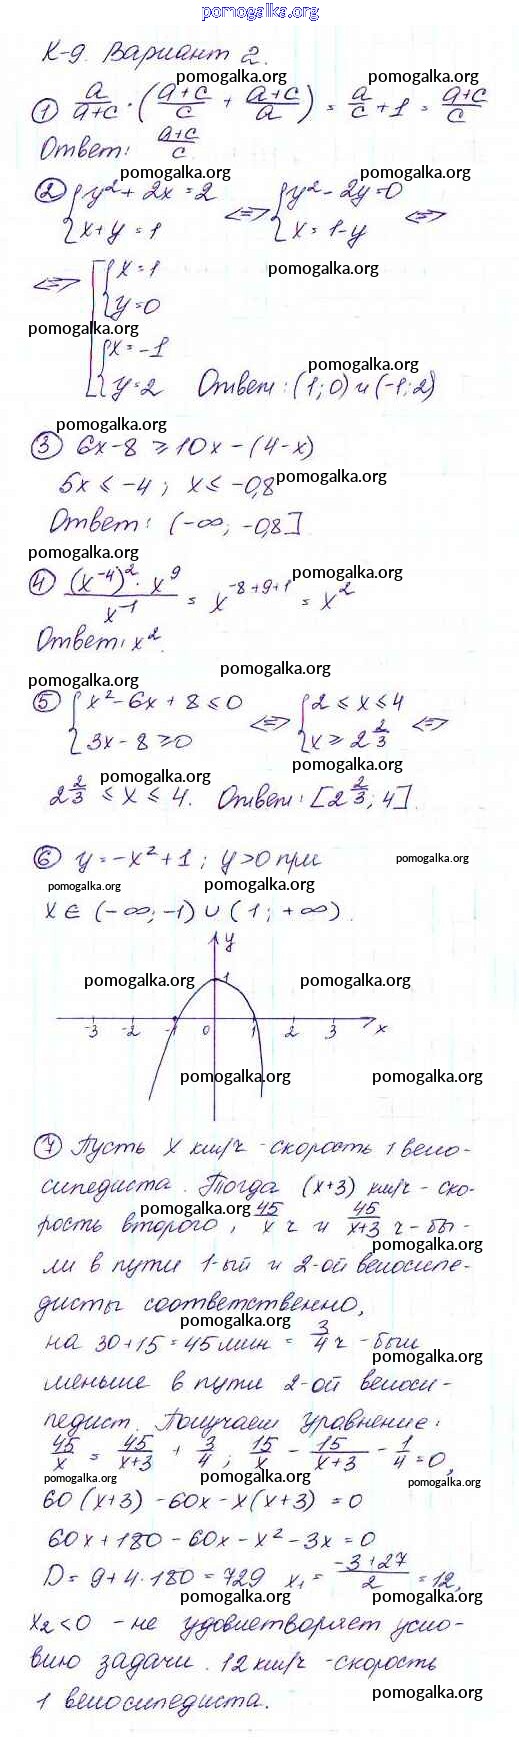 pomogalka.org
К-9. Вариант 2.
pomogalka.org
① a/(a+c) · ((a+c)/c + (a+c)/a) = a/c + 1 = (a+c)/c
pomogalka.org
Ответ: (a+c)/c
pomogalka.org pomogalka.org
② { y² + 2x = 2 ⟺ { y² - 2y = 0 ⟺
x + y = 1 x = 1-y
⟺ [ { x = 1 pomogalka.org
y = 0
pomogalka.org
{ x = -1
pomogalka.org
y = 2 Ответ: (1; 0) и (-1; 2)
pomogalka.org
③ 6x - 8 ⩾ 10x - (4 - x)
5x ⩽ -4; x ⩽ -0,8 pomogalka.org
Ответ: (-∞; -0,8]
pomogalka.org
④ ((x⁻⁴)² · x⁹)/x⁻¹ = x^(-8+9+1) = x²
pomogalka.org
Ответ: x².
pomogalka.org
⑤ { x² - 6x + 8 ⩽ 0 ⟺ { 2 ⩽ x ⩽ 4 ⟺
3x - 8 ⩾ 0 x ⩾ 2 2/3
pomogalka.org pomogalka.org
2 2/3 ⩽ x ⩽ 4. Ответ: [2 2/3; 4].
⑥ y = -x² + 1; y > 0 при pomogalka.org
pomogalka.org
x ∈ (-∞; -1) ∪ (1; +∞).
pomogalka.org
y
1
pomogalka.org pomogalka.org
-3 -2 -1 0 1 2 3 x
pomogalka.org pomogalka.org
⑦ Пусть x км/ч - скорость 1 вело-
сипедиста. Тогда (x+3) км/ч - ско-
pomogalka.org
рость второго, 45/x ч и 45/(x+3) ч - бы-
pomogalka.org
ли в пути 1-ый и 2-ой велосипе-
дисты соответственно,
pomogalka.org
на 30 + 15 = 45 мин = 3/4 ч - был
pomogalka.org
меньше в пути 2-ой велоси-
педист. Получаем уравнение:
pomogalka.org
45/x = 45/(x+3) + 3/4; 15/x - 15/(x+3) - 1/4 = 0,
pomogalka.org pomogalka.org pomogalka.org
60(x+3) - 60x - x(x+3) = 0
60x + 180 - 60x - x² - 3x = 0
D = 9 + 4·180 = 729 x₁ = (-3+27)/2 = 12,
pomogalka.org pomogalka.org
x₂ < 0 - не удовлетворяет усло-
вию задачи. 12 км/ч - скорость
1 велосипедиста.
pomogalka.org
pomogalka.org